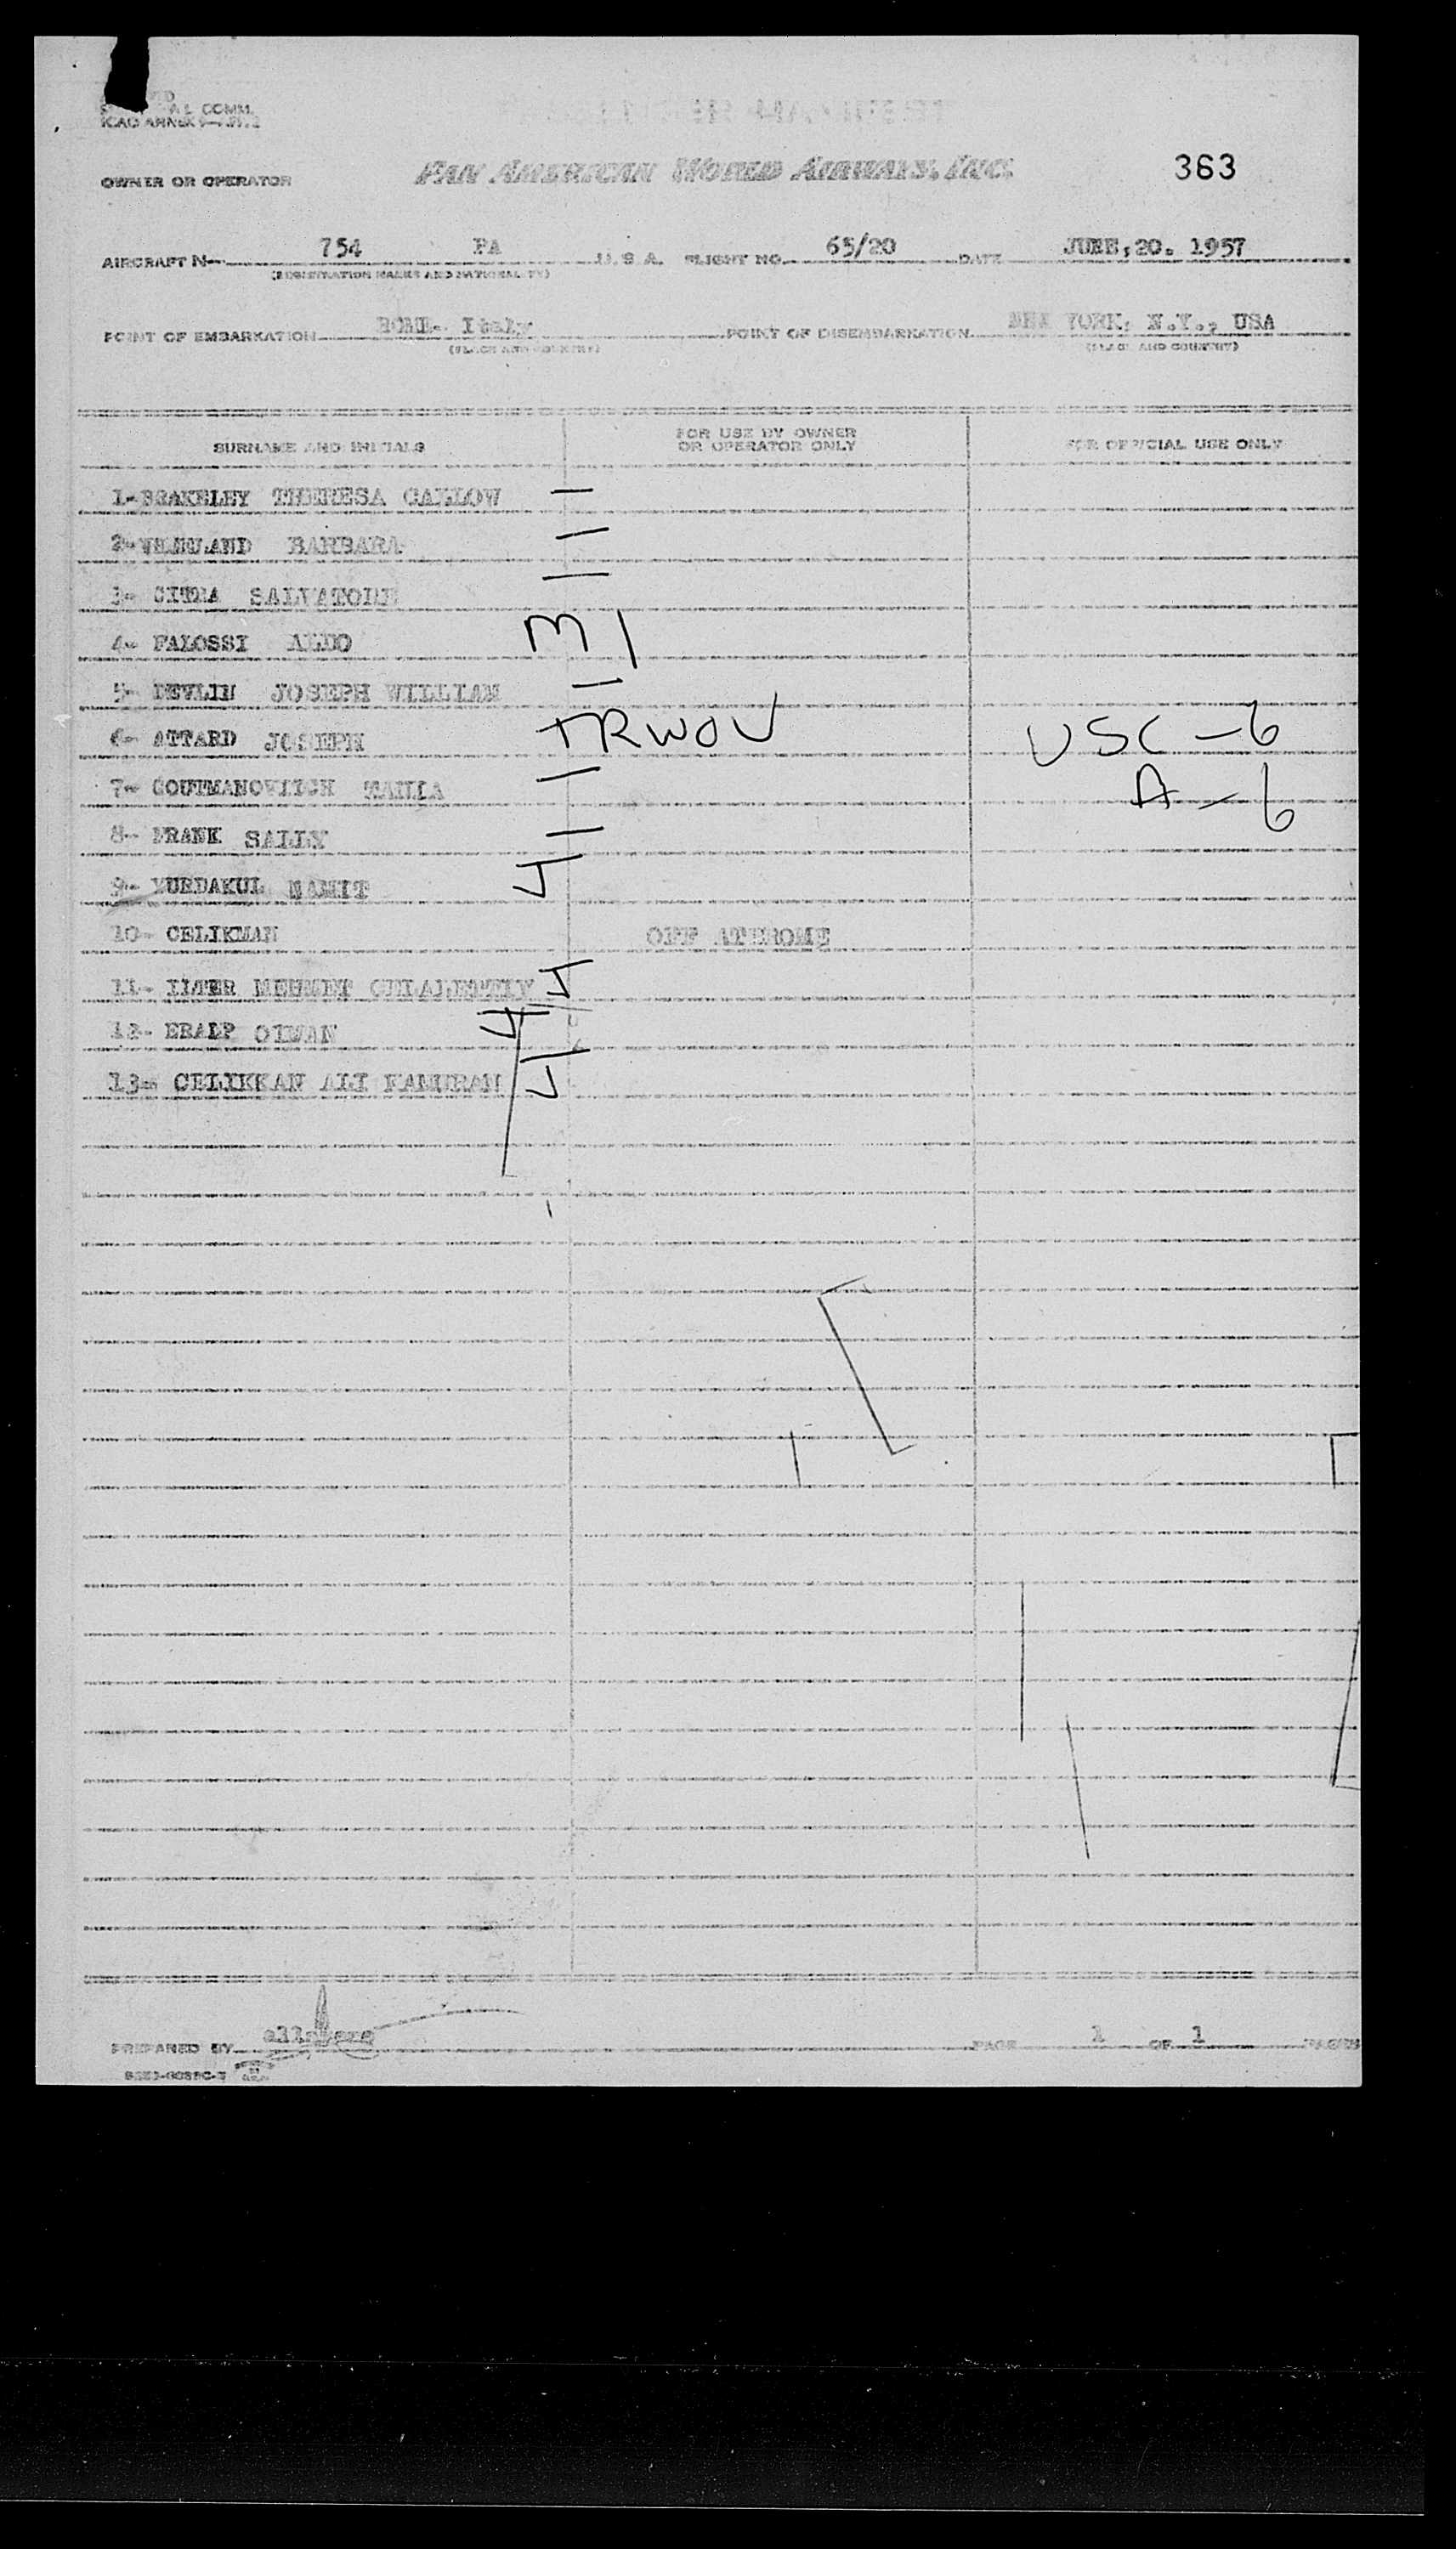 COMM.
ICAO ANNEX 9
OWNER OR OPERATOR PAN AMERICAN WORLD AIRWAYS, INC. 363
AIRCRAFT N 754 PA U.S.A. FLIGHT NO. 65/20 DATE JUNE,20. 1957
(REGISTRATION MARKS AND NATIONALITY)
POINT OF EMBARKATION ROME- Italy POINT OF DISEMBARKATION NEW YORK, N.Y., USA
(PLACE AND COUNTRY) (PLACE AND COUNTRY)
SURNAME AND INITIALS FOR USE BY OWNER OR OPERATOR ONLY FOR OFFICIAL USE ONLY
1- BRAKELEY THERESA CALLOW —
2- BARBARA —
3- SALVATORE —
4- FALOSSI ALDO M I
5- DEVLIN JOSEPH WILLIAM —
6- ATTARD JOSEPH TRWOV USC - 6
7- GOUTMANOVITCH — A - 6
8- FRANK SALLY —
9- YURDAKUL NAMIT J
10- CELIKMAN OFF AT ROME
11- ILTER MEHMET J
12- ERALP J
13- CELIKKAN ALI KAMURAN J
PREPARED BY PAGE 1 OF 1 PAGES